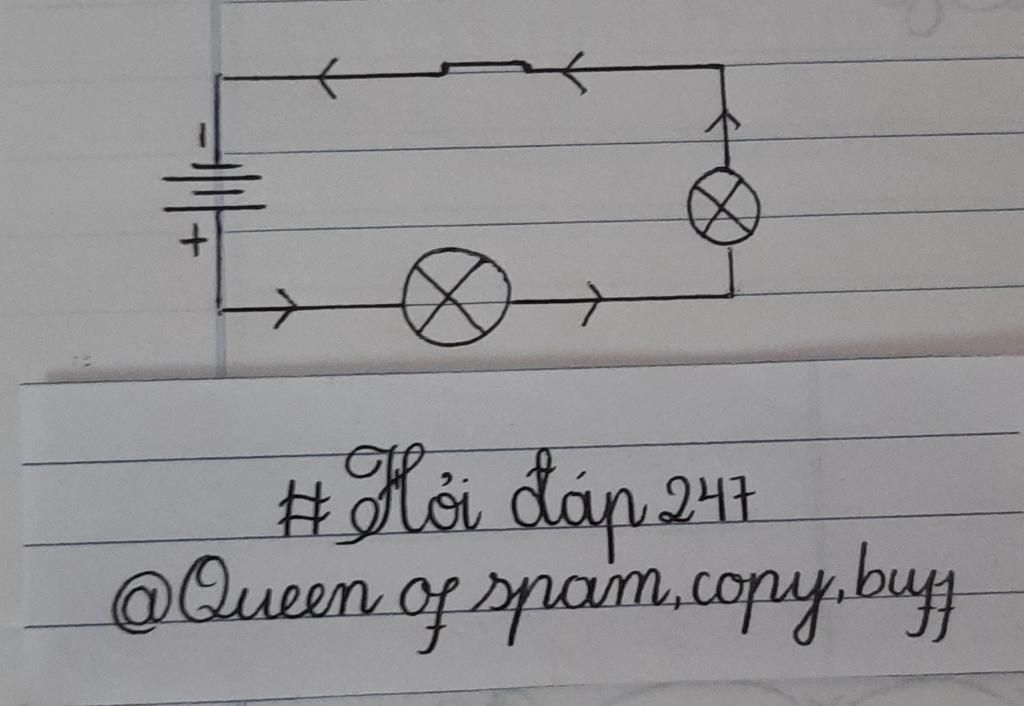 -
+
# Hỏi đáp 247
@Queen of spam, copy, buff